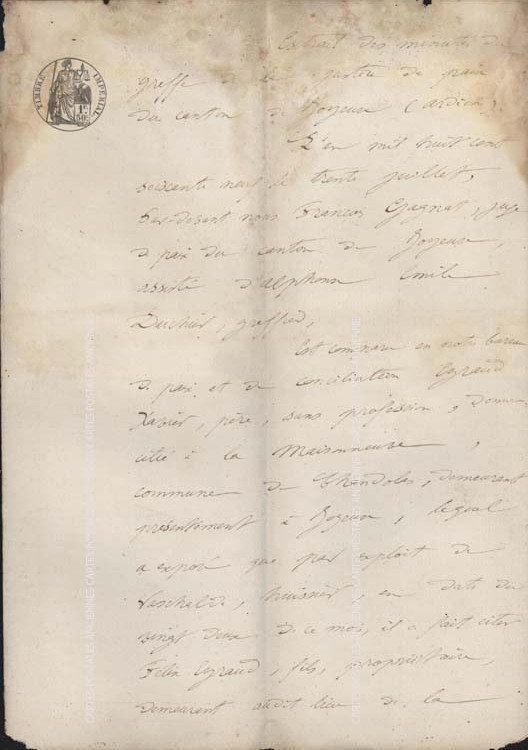 Extrait des minutes du
greffe de la justice de paix
du canton de Joyeuse (Ardèche).
L'an mil huit cent
soixante neuf le trente juillet,
Par-devant nous François Gagnat, juge
de paix du canton de Joyeuse,
assisté d'alphonse Emile
Duchier, greffier,
Est comparu en notre bureau
de paix et de conciliation Eyraud
Xavier, père, sans profession, domi
cilié à la Maisonneuve,
commune de Chandolas, demeurant
présentement à Joyeuse, lequel
a exposé que par exploit de
huissier, en date du
vingt deux de ce mois, il a fait citer
Félix Eyraud, fils, propriétaire,
demeurant audit lieu de la
TIMBRE IMPERIAL
1F
50C